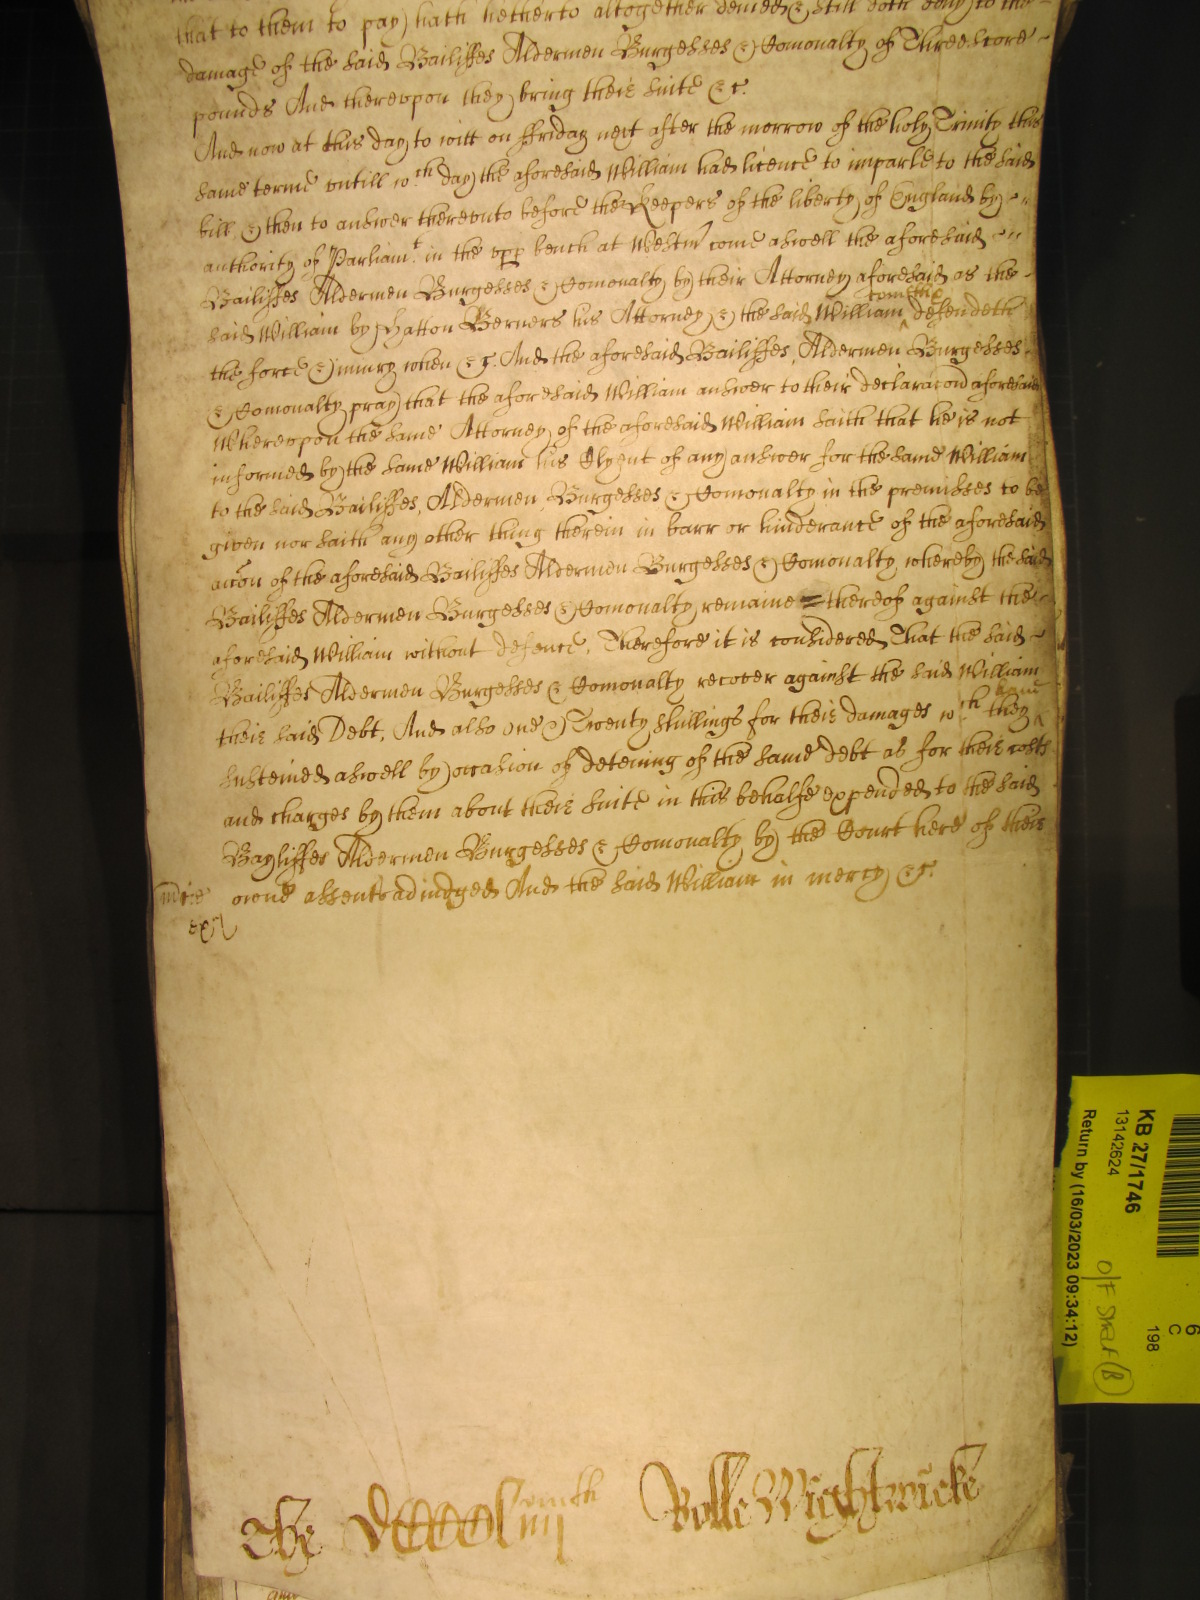 that to them to pay) hath hetherto altogether denied & still doth deny to the
damage of the said Bailiffes Aldermen Burgesses & Comonalty of Threescore
pounds And thereupon they bring their suite &c.
And now at this day to witt on ffriday next after the morrow of the holy Trinity this
same terme untill wch day the aforesaid William had licence to imparle to the said
bill & then to answer thereunto before the Keepers of the liberty of England by
authority of Parliamt. in the upp bench at Westmr come aswell the aforesaid
Bailiffes Aldermen Burgesses & Comonalty by their Attorney aforesaid as the
said William by Hatton Berners his Attorney & the said William comethe defendeth
the force & iniury when &c. And the aforesaid Bailiffes, Aldermen Burgesses
& Comonalty pray that the aforesaid William answer to their declaracon aforesaid
Whereupon the same Attorney of the aforesaid William saith that he is not
informed by the same William his Clyent of any answer for the same William
to the said Bailiffes, Aldermen, Burgesses & Comonalty in the premisses to be
given nor saith any other thing therein in barr or hinderance of the aforesaid
accon of the aforesaid Bailiffes Aldermen Burgesses & Comonalty, whereby the said
Bailiffes Aldermen Burgesses & Comonalty remaine thereof against the
aforesaid William without defence, Therefore it is considered That the said
Bailiffes Aldermen Burgesses & Comonalty recover against the said William
their said Debt, And also one & Twenty shillings for their damages wch they have
susteined aswell by occasion of deteining of the same debt as for their costs
and charges by them about their suite in this behalfe expended to the said
Bayliffes Aldermen Burgesses & Comonalty by the Court here of their
owne assents adiudged And the said William in mercy &c.
The Rolle Wightwicke
KB 27/1746
13142624
Return by (16/03/2023 09:34:12)
O/F Shelf (B)
6
C
198